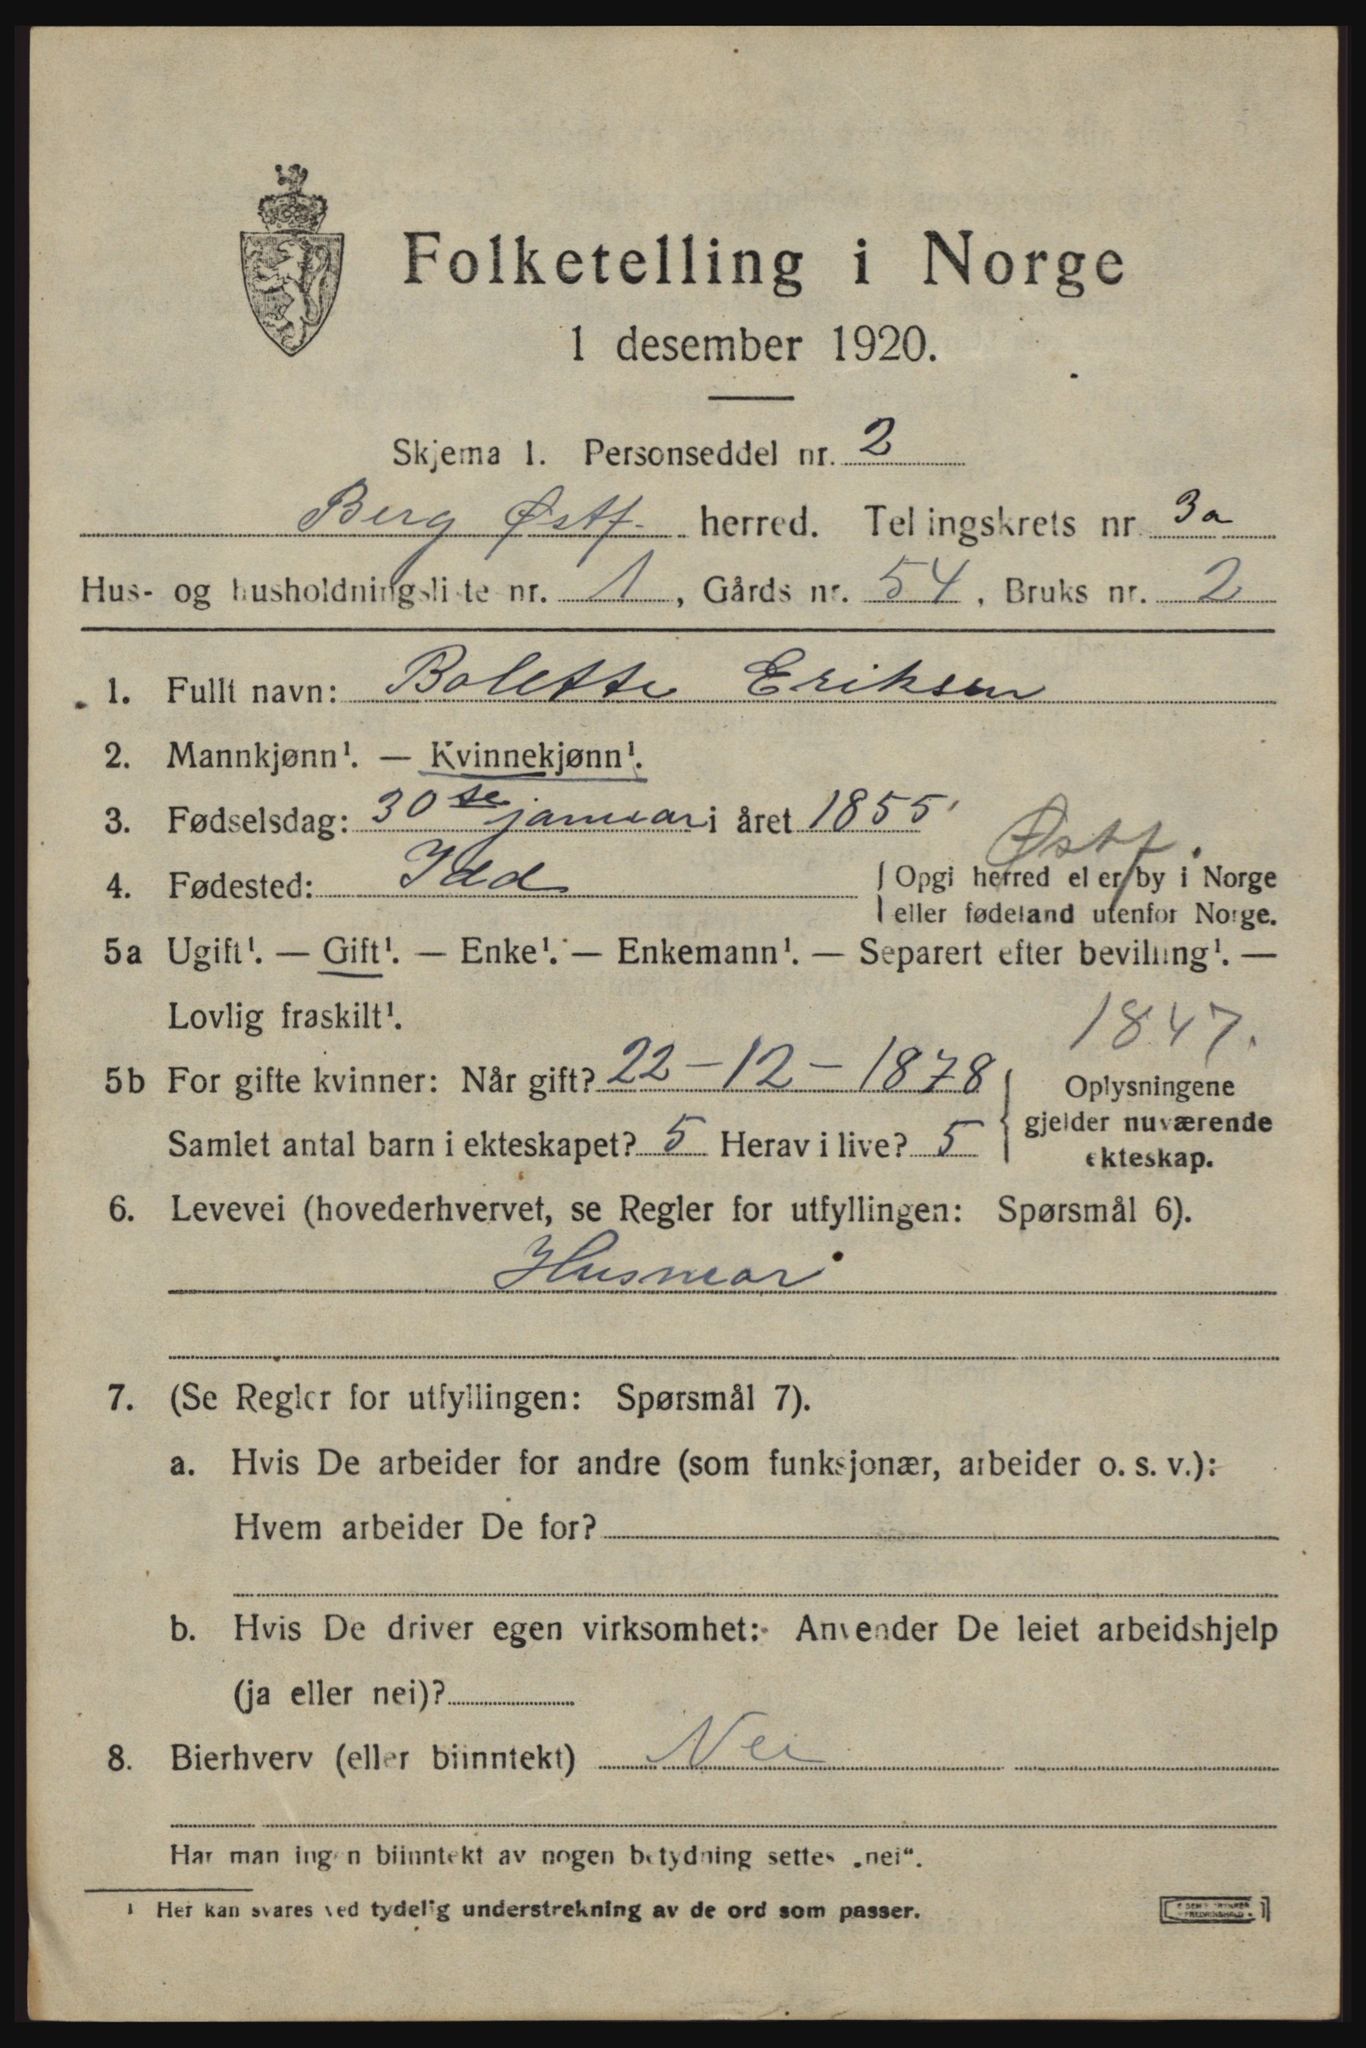 Folketelling i Norge
1 desember 1920.
Skjema 1. Personseddel nr. 2
Berg Østf. herred. Tellingskrets nr. 3a
Hus- og husholdningsliste nr. 1, Gårds nr. 54, Bruks nr. 2
1. Fullt navn: Bolette Eriksen
2. Mannkjønn¹. — Kvinnekjønn¹.
3. Fødselsdag: 30te januar i året 1855
Østf.
4. Fødested: Idd
Opgi herred eller by i Norge
eller fødeland utenfor Norge.
5a Ugift¹. — Gift¹. — Enke¹. — Enkemann¹. — Separert efter bevilling¹. —
Lovlig fraskilt¹.
1847.
5b For gifte kvinner: Når gift? 22-12-1878
Samlet antal barn i ekteskapet? 5 Herav i live? 5
Oplysningene
gjelder nuværende
ekteskap.
6. Levevei (hovederhvervet, se Regler for utfyllingen: Spørsmål 6).
Husmor
7. (Se Regler for utfyllingen: Spørsmål 7).
a. Hvis De arbeider for andre (som funksjonær, arbeider o. s. v.):
Hvem arbeider De for?
b. Hvis De driver egen virksomhet: Anvender De leiet arbeidshjelp
(ja eller nei)?
8. Bierhverv (eller biinntekt) Nei
Har man ingen biinntekt av nogen betydning settes „nei“.
¹ Her kan svares ved tydelig understrekning av de ord som passer.